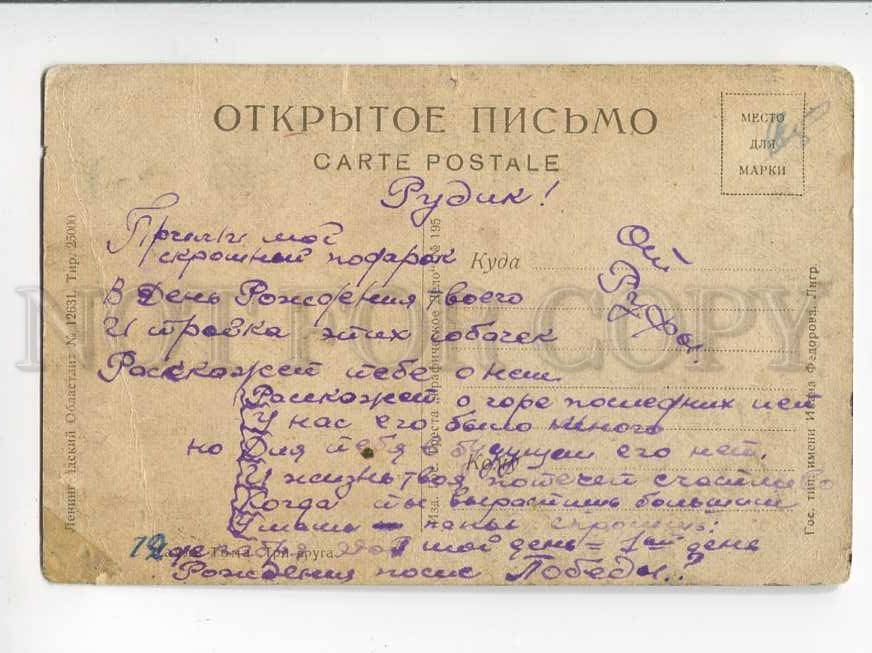 ОТКРЫТОЕ ПИСЬМО
CARTE POSTALE
МЕСТО
ДЛЯ
МАРКИ
Рудик!
Прими мой
скромный подарок
В День Рождения твоего
И травка этих собачек
Расскажет тебе о нем
Расскажет о горе последних лет
У нас его было много
но Для тебя в будущем его нет.
И жизнь твоя потечет счастливо
Когда ты вырастишь большим
У мамы - папы спросишь:
где мой день = 1ый день
Рождения после Победы?
От
Руфы!
Куда
Кому
Ленинградский Областлит № 12631. Тир. 25000
№ 195
Гос. тип. имени Ивана Федорова. Лнгр.
Три друга
12
NOT FOR COPY